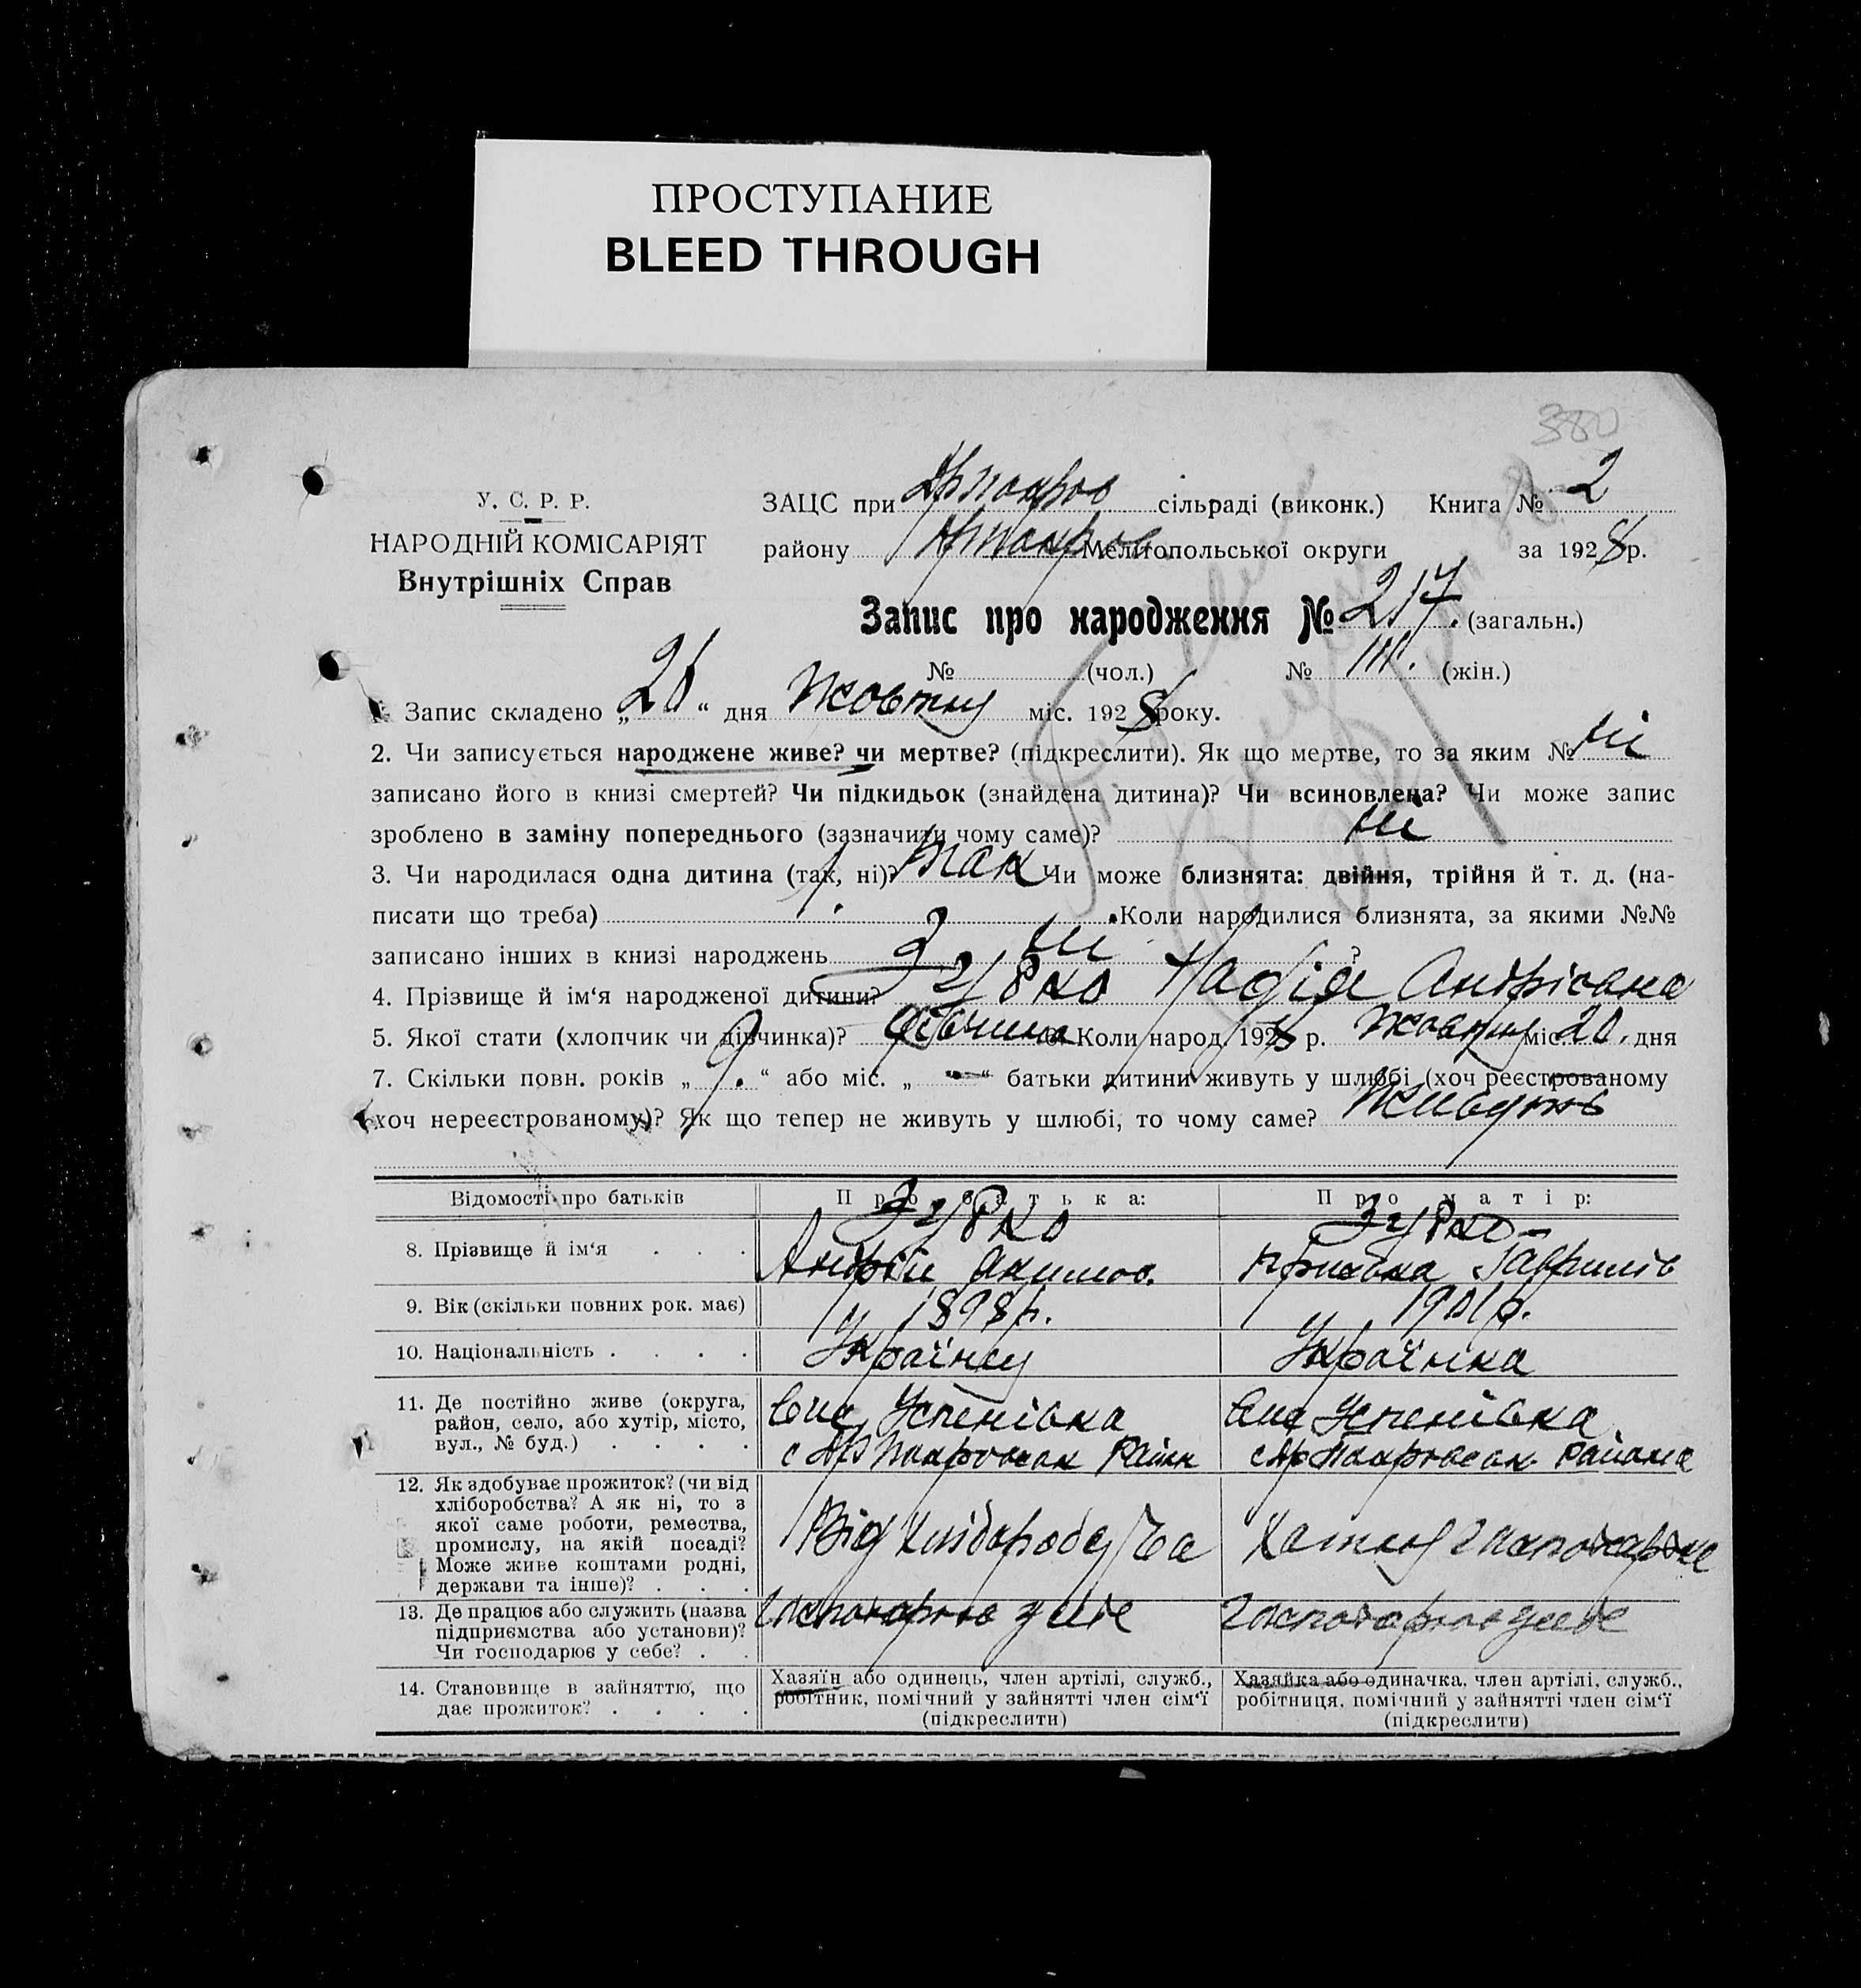 380
ПРОСТУПАНИЕ
BLEED THROUGH
У. С. Р. Р.
НАРОДНІЙ КОМІСАРІЯТ
Внутрішніх Справ
ЗАЦС при сільраді (виконк.) Книга № 2
району Мелітопольської округи за 1928 р.
Запис про народження № 217. (загальн.)
№ (чол.) № 111. (жін.)
1. Запис складено „ 26 “ дня Жовтня міс. 1928 року.
2. Чи записується народжене живе? чи мертве? (підкреслити). Як що мертве, то за яким № ні
записано його в книзі смертей? Чи підкидьок (знайдена дитина)? Чи всиновлена? Чи може запис
зроблено в заміну попереднього (зазначити чому саме)? ні
3. Чи народилася одна дитина (так, ні)? Так Чи може близнята: двійня, трійня й т. д. (на-
писати що треба) Коли народилися близнята, за якими №№
записано інших в книзі народжень ні ?
4. Прізвище й ім‘я народженої дитини? Зурко Надія Андріівна
5. Якої стати (хлопчик чи дівчинка)? дівчина 6. Коли народ. 1928 р. Жовтня міс. 20. дня
7. Скільки повн. років „ 9. “ або міс. „ — “ батьки дитини живуть у шлюбі (хоч реєстрованому
хоч нереєстрованому)? Як що тепер не живуть у шлюбі, то чому саме? Живуть
Відомості про батьків Про батька: Про матір:
8. Прізвище й ім‘я Зурко Андрій Якимов. Зурко
9. Вік (скільки повних рок. має) 1898р. 1901р.
10. Національність Українец Українка
11. Де постійно живе (округа,
район, село, або хутір, місто,
вул., № буд.)
Успенівка
Успенівка
12. Як здобуває прожиток? (чи від
хліборобства? А як ні, то з
якої саме роботи, ремества,
промислу, на якій посаді?
Може живе коштами родні,
держави та інше)?
Від
13. Де працює або служить (назва
підприємства або установи)?
Чи господарює у себе?
14. Становище в зайняттю, що
дає прожиток?
Хазяїн або одинець, член артілі, служб.,
робітник, помічний у зайнятті член сім‘ї
(підкреслити)
Хазяйка або одиначка, член артілі, служб.,
робітниця, помічний у зайнятті член сім‘ї
(підкреслити)